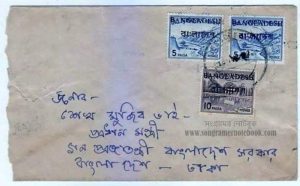 BANGLADESH
বাংলাদেশ
5 PAISA
BANGLADESH
বাংলাদেশ
BANGLADESH
বাংলাদেশ
10 PAISA
জনাব -
শেখ মুজিব ভাই -
প্রধান মন্ত্রী
গণ প্রজাতন্ত্রী বাংলাদেশ সরকার
বাংলা দেশ - ঢাকা
সংগ্রামের নোটবুক
www.songramernotebook.com